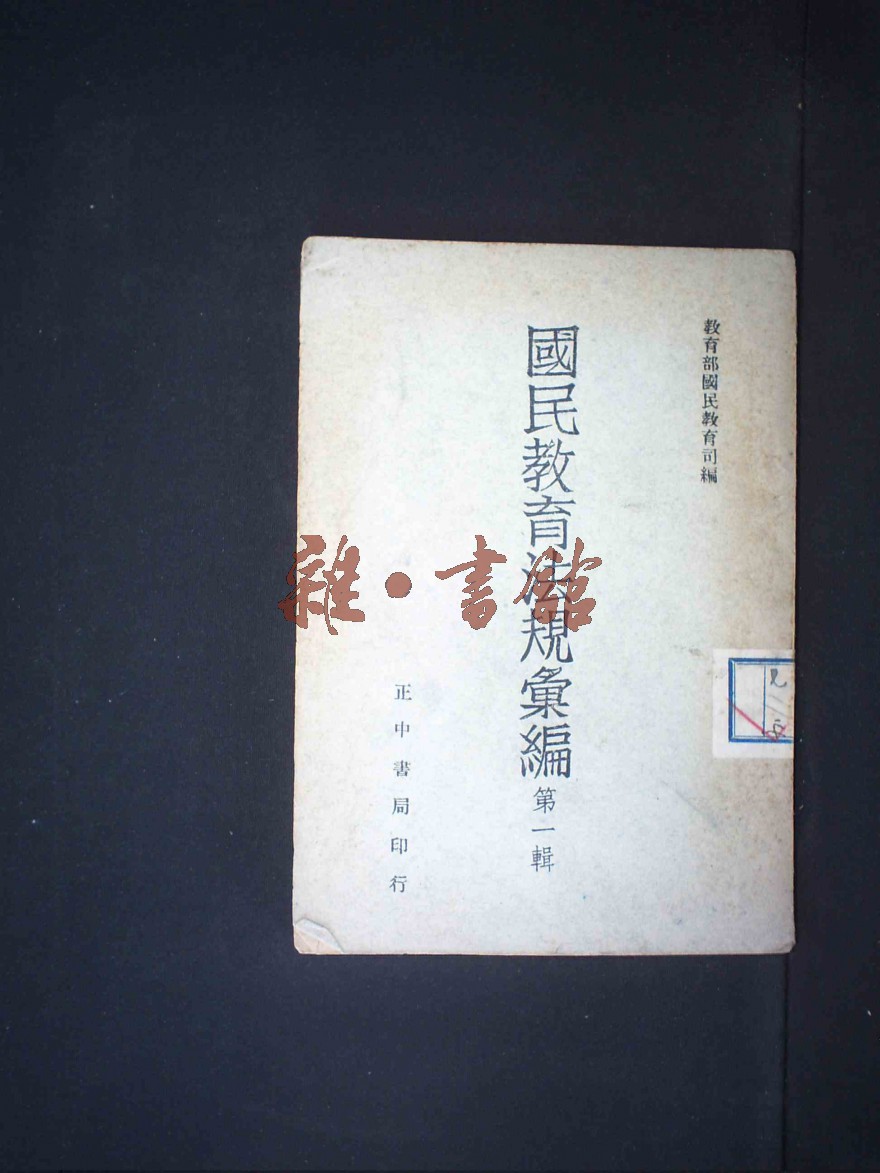 教育部國民教育司編
國民教育法規彙編
第一輯
正中書局印行
雜·書館